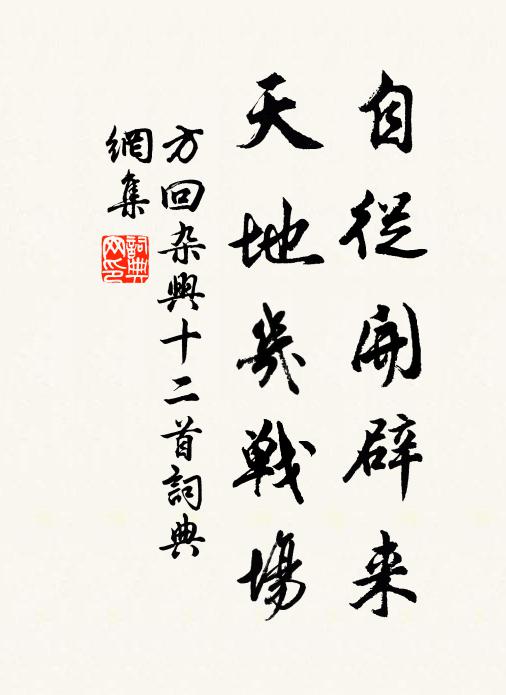 自從開辟来
天地幾戦場
方回杂興十二首詞典
網集
詞典
网印